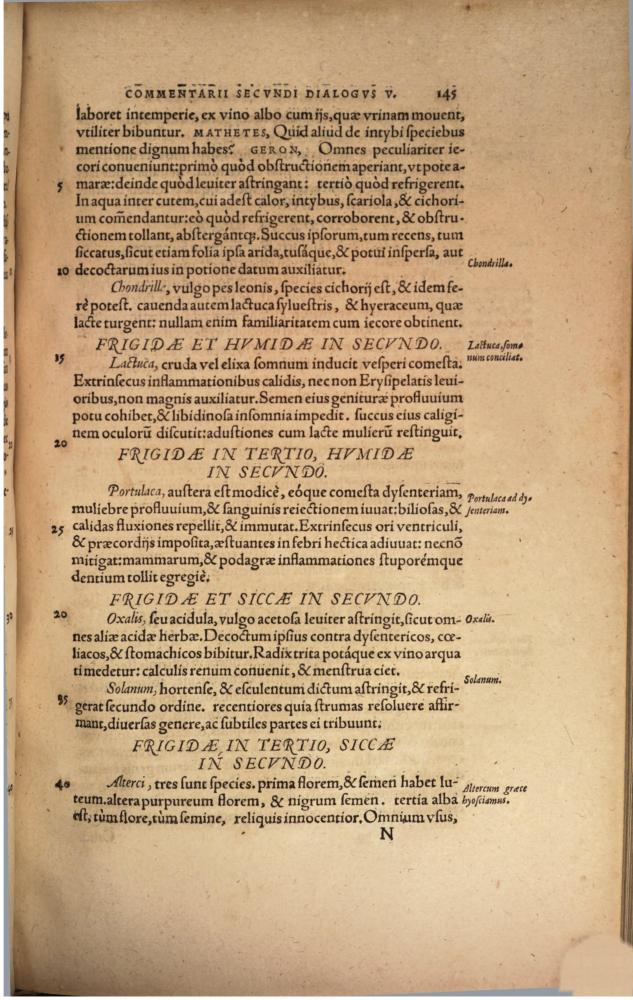 COMMENTARII SECVNDI DIALOGVS V. 145
laboret intemperie, ex vino albo cum ijs, quæ vrinam mouent,
vtiliter bibuntur. MATHETES, Quid aliud de intybi speciebus
mentione dignum habes? GERON, Omnes peculiariter ie-
cori conueniunt: primò quòd obstructionem aperiant, vt pote a-
5 maræ: deinde quòd leuiter astringant: tertiò quòd refrigerent.
In aqua inter cutem, cui adest calor, intybus, scariola, & cichori-
um com̃endantur: eò quòd refrigerent, corroborent, & obstru-
ctionem tollant, abstergántq;. Succus ipsorum, tum recens, tum
siccatus, sicut etiam folia ipsa arida, tusáque, & potui inspersa, aut
10 decoctarum ius in potione datum auxiliatur.
Chondrilla.
Chondrille, vulgo pes leonis, species cichorij est, & idem fe-
rè potest. cauenda autem lactuca syluestris, & hyeraceum, quæ
lacte turgent: nullam enim familiaritatem cum iecore obtinent.
FRIGIDÆ ET HVMIDÆ IN SECVNDO.
Lactuca, som-
num conciliat.
15 Lactuca, cruda vel elixa somnum inducit vesperi comesta.
Extrinsecus inflammationibus calidis, nec non Erysipelatis leui-
oribus, non magnis auxiliatur. Semen eius genituræ profluuium
potu cohibet, & libidinosa insomnia impedit. succus eius caligi-
nem oculorū discutit: adustiones cum lacte mulierū restinguit.
20 FRIGIDÆ IN TERTIO, HVMIDÆ
IN SECVNDO.
Portulaca, austera est modicè, eóque comesta dysenteriam,
Portulaca ad dy-
senteriam.
muliebre profluuium, & sanguinis reiectionem iuuat: biliosas, &
25 calidas fluxiones repellit, & immutat. Extrinsecus ori ventriculi,
& præcordijs imposita, æstuantes in febri hectica adiuuat: necnō
mitigat: mammarum, & podagræ inflammationes stuporémque
dentium tollit egregiè.
FRIGIDÆ ET SICCÆ IN SECVNDO.
20 Oxalis, seu acidula, vulgo acetosa leuiter astringit, sicut om-
Oxalis.
nes aliæ acidæ herbæ. Decoctum ipsius contra dysentericos, cœ-
liacos, & stomachicos bibitur. Radix trita potáque ex vino arqua
ti medetur: calculis renum conuenit, & menstrua ciet.
Solanum.
Solanum, hortense, & esculentum dictum astringit, & refri-
35 gerat secundo ordine. recentiores quia strumas resoluere affir-
mant, diuersas genere, ac subtiles partes ei tribuunt.
FRIGIDÆ IN TERTIO, SICCÆ
IN SECVNDO.
40 Alterci, tres sunt species. prima florem, & semen habet lu-
Altercum græce
hyosciamus.
teum. altera purpureum florem, & nigrum semen. tertia alba
est, tùm flore, tùm semine, reliquis innocentior. Omnium vsus,
N